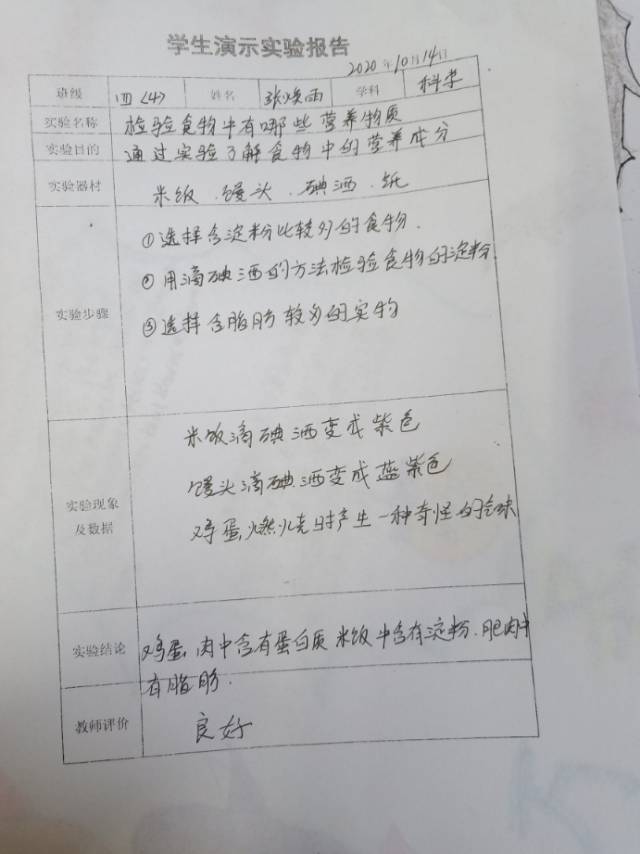 学生演示实验报告
2020年10月14日
班级 四(4) 姓名 张焕雨 学科 科学
实验名称 检验食物中有哪些营养物质
实验目的 通过实验了解食物中的营养成分
实验器材 米饭、馒头、碘酒、纸
实验步骤
①选择含淀粉比较多的食物.
②用滴碘酒的方法检验食物的淀粉
③选择含脂肪较多的实物
实验现象
及数据
米饭滴碘酒变成紫色
馒头滴碘酒变成蓝紫色
鸡蛋燃烧时产生一种奇怪的气味
实验结论 鸡蛋,肉中含有蛋白质米饭中含有淀粉.肥肉中
有脂肪.
教师评价 良好